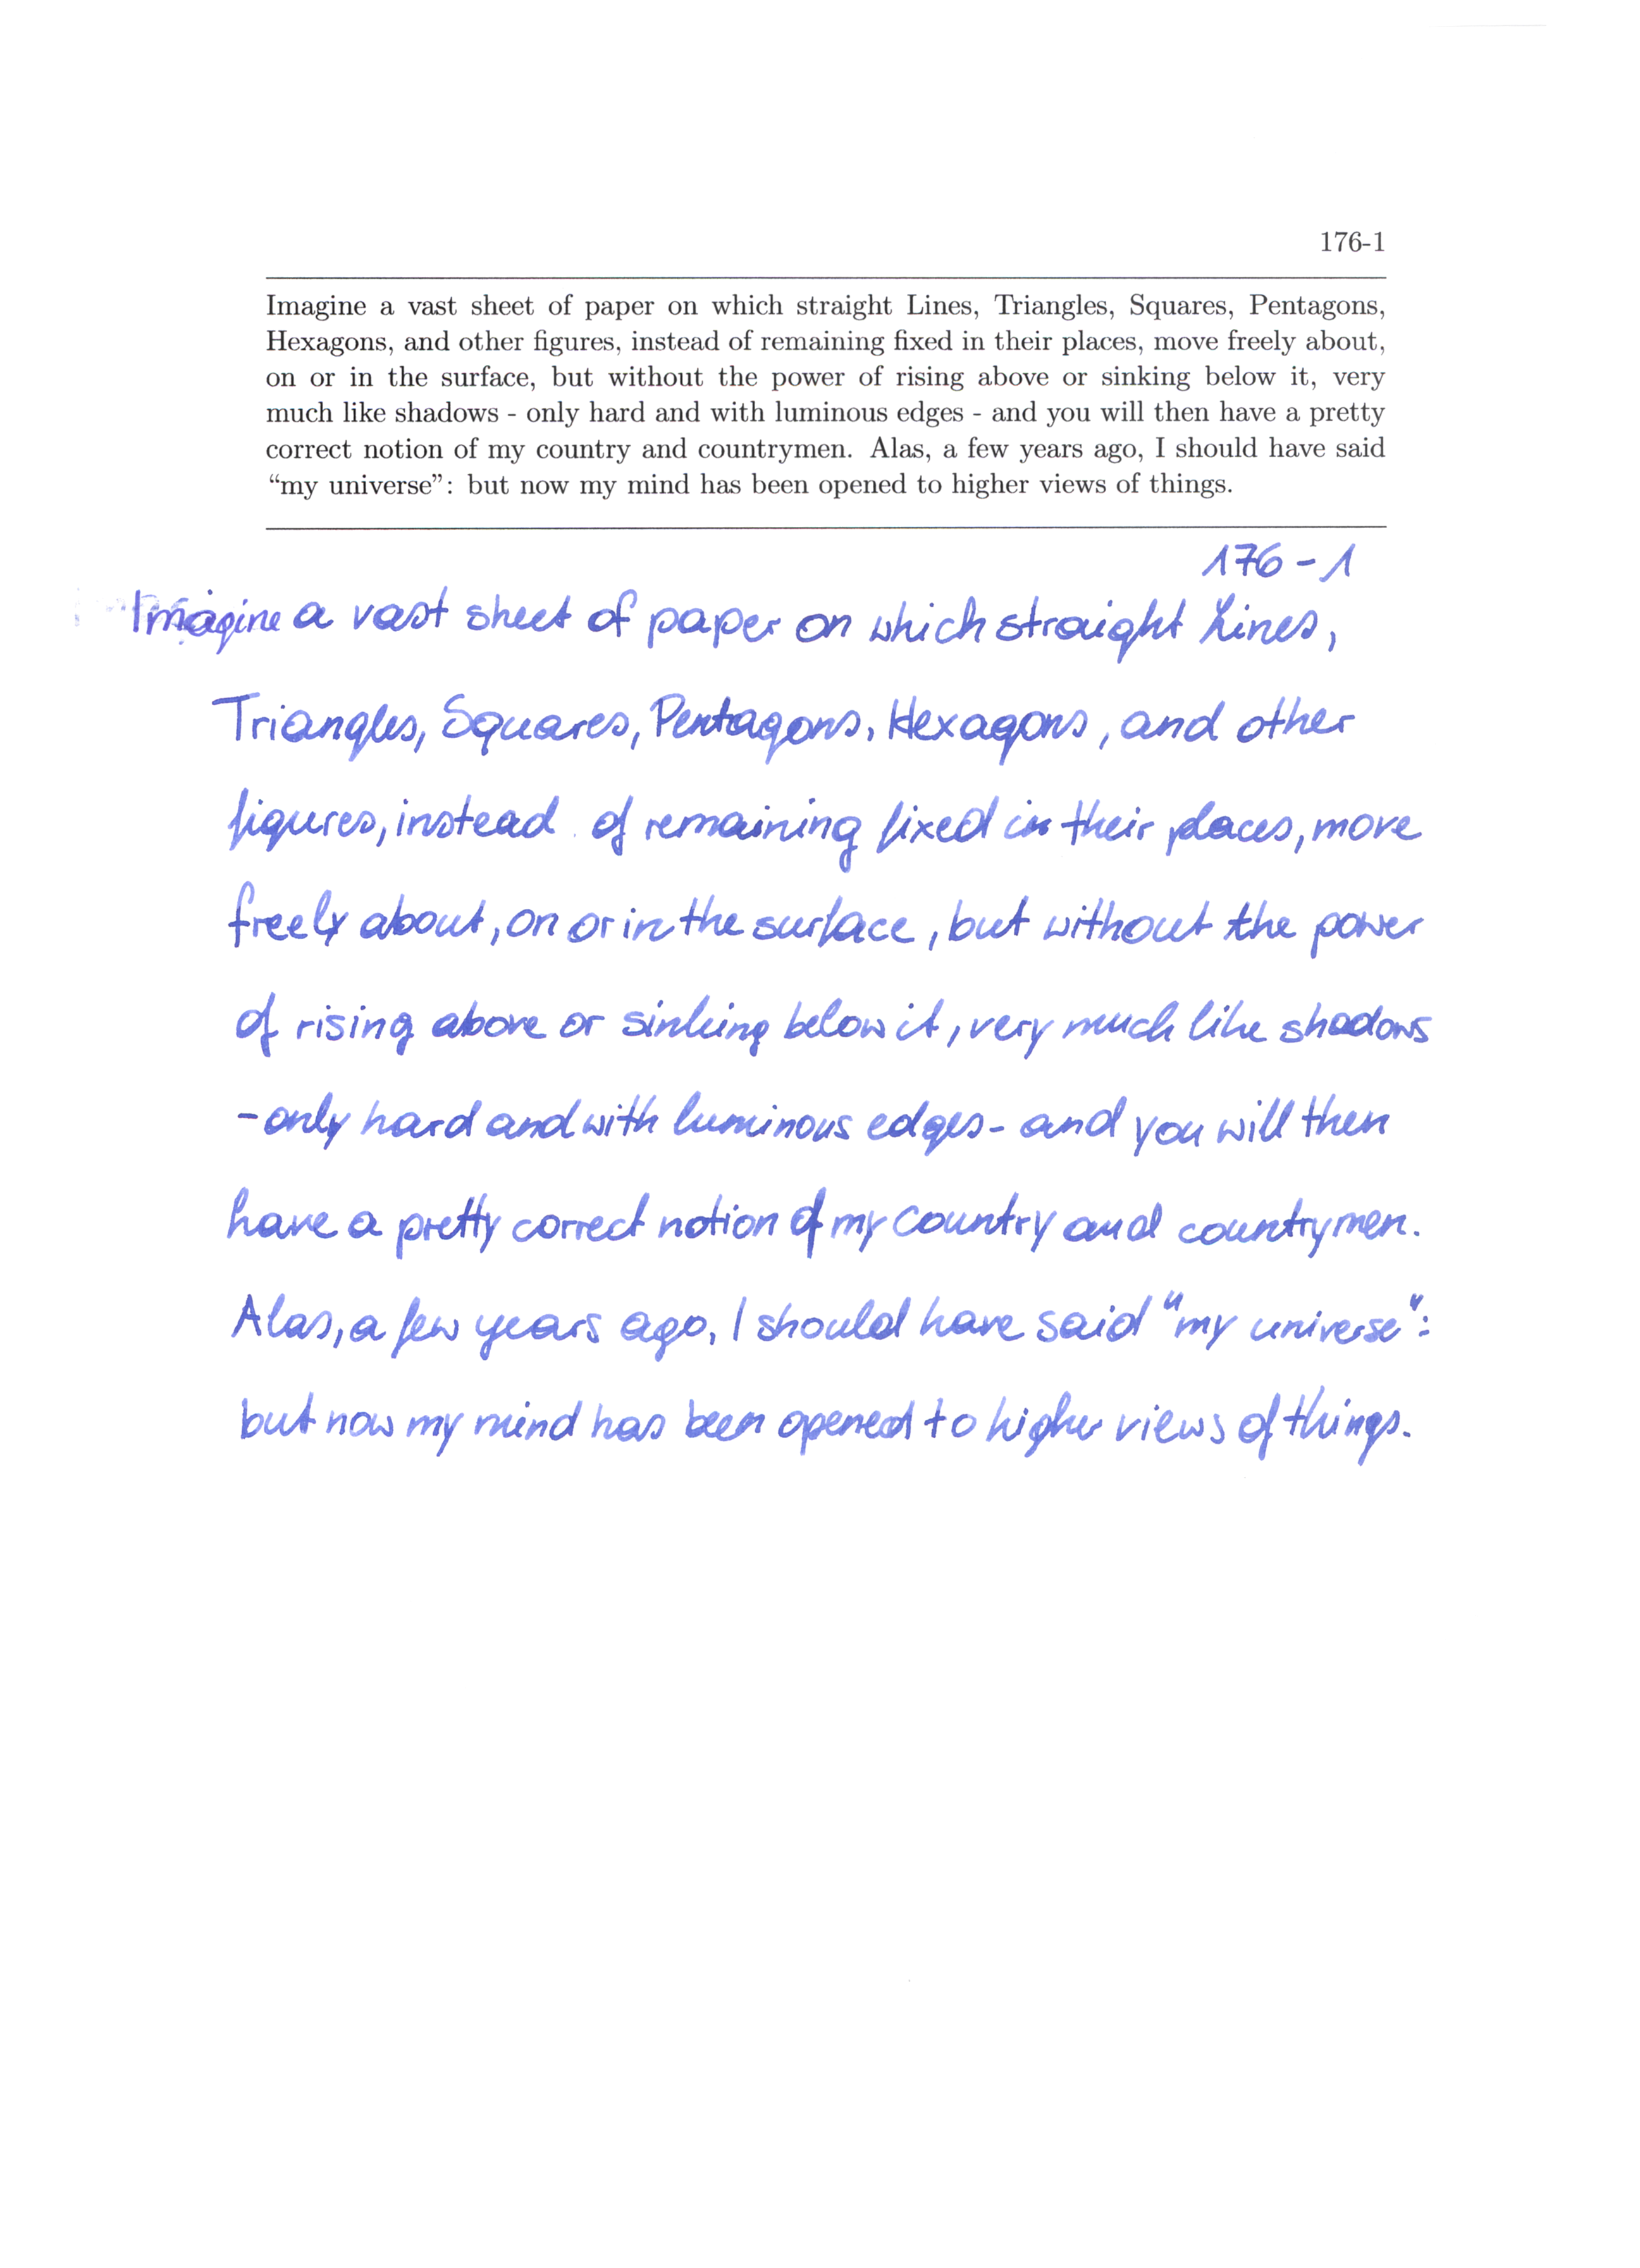 176-1
Imagine a vast sheet of paper on which straight Lines, Triangles, Squares, Pentagons,
Hexagons, and other figures, instead of remaining fixed in their places, move freely about,
on or in the surface, but without the power of rising above or sinking below it, very
much like shadows - only hard and with luminous edges - and you will then have a pretty
correct notion of my country and countrymen. Alas, a few years ago, I should have said
“my universe”: but now my mind has been opened to higher views of things.
176-1
Imagine a vast sheet of paper on which straight Lines,
Triangles, Squares, Pentagons, Hexagons, and other
figures, instead of remaining fixed in their places, move
freely about, on or in the surface, but without the power
of rising above or sinking below it, very much like shadows
- only hard and with luminous edges - and you will then
have a pretty correct notion of my country and countrymen.
Alas, a few years ago, I should have said "my universe":
but now my mind has been opened to higher views of things.